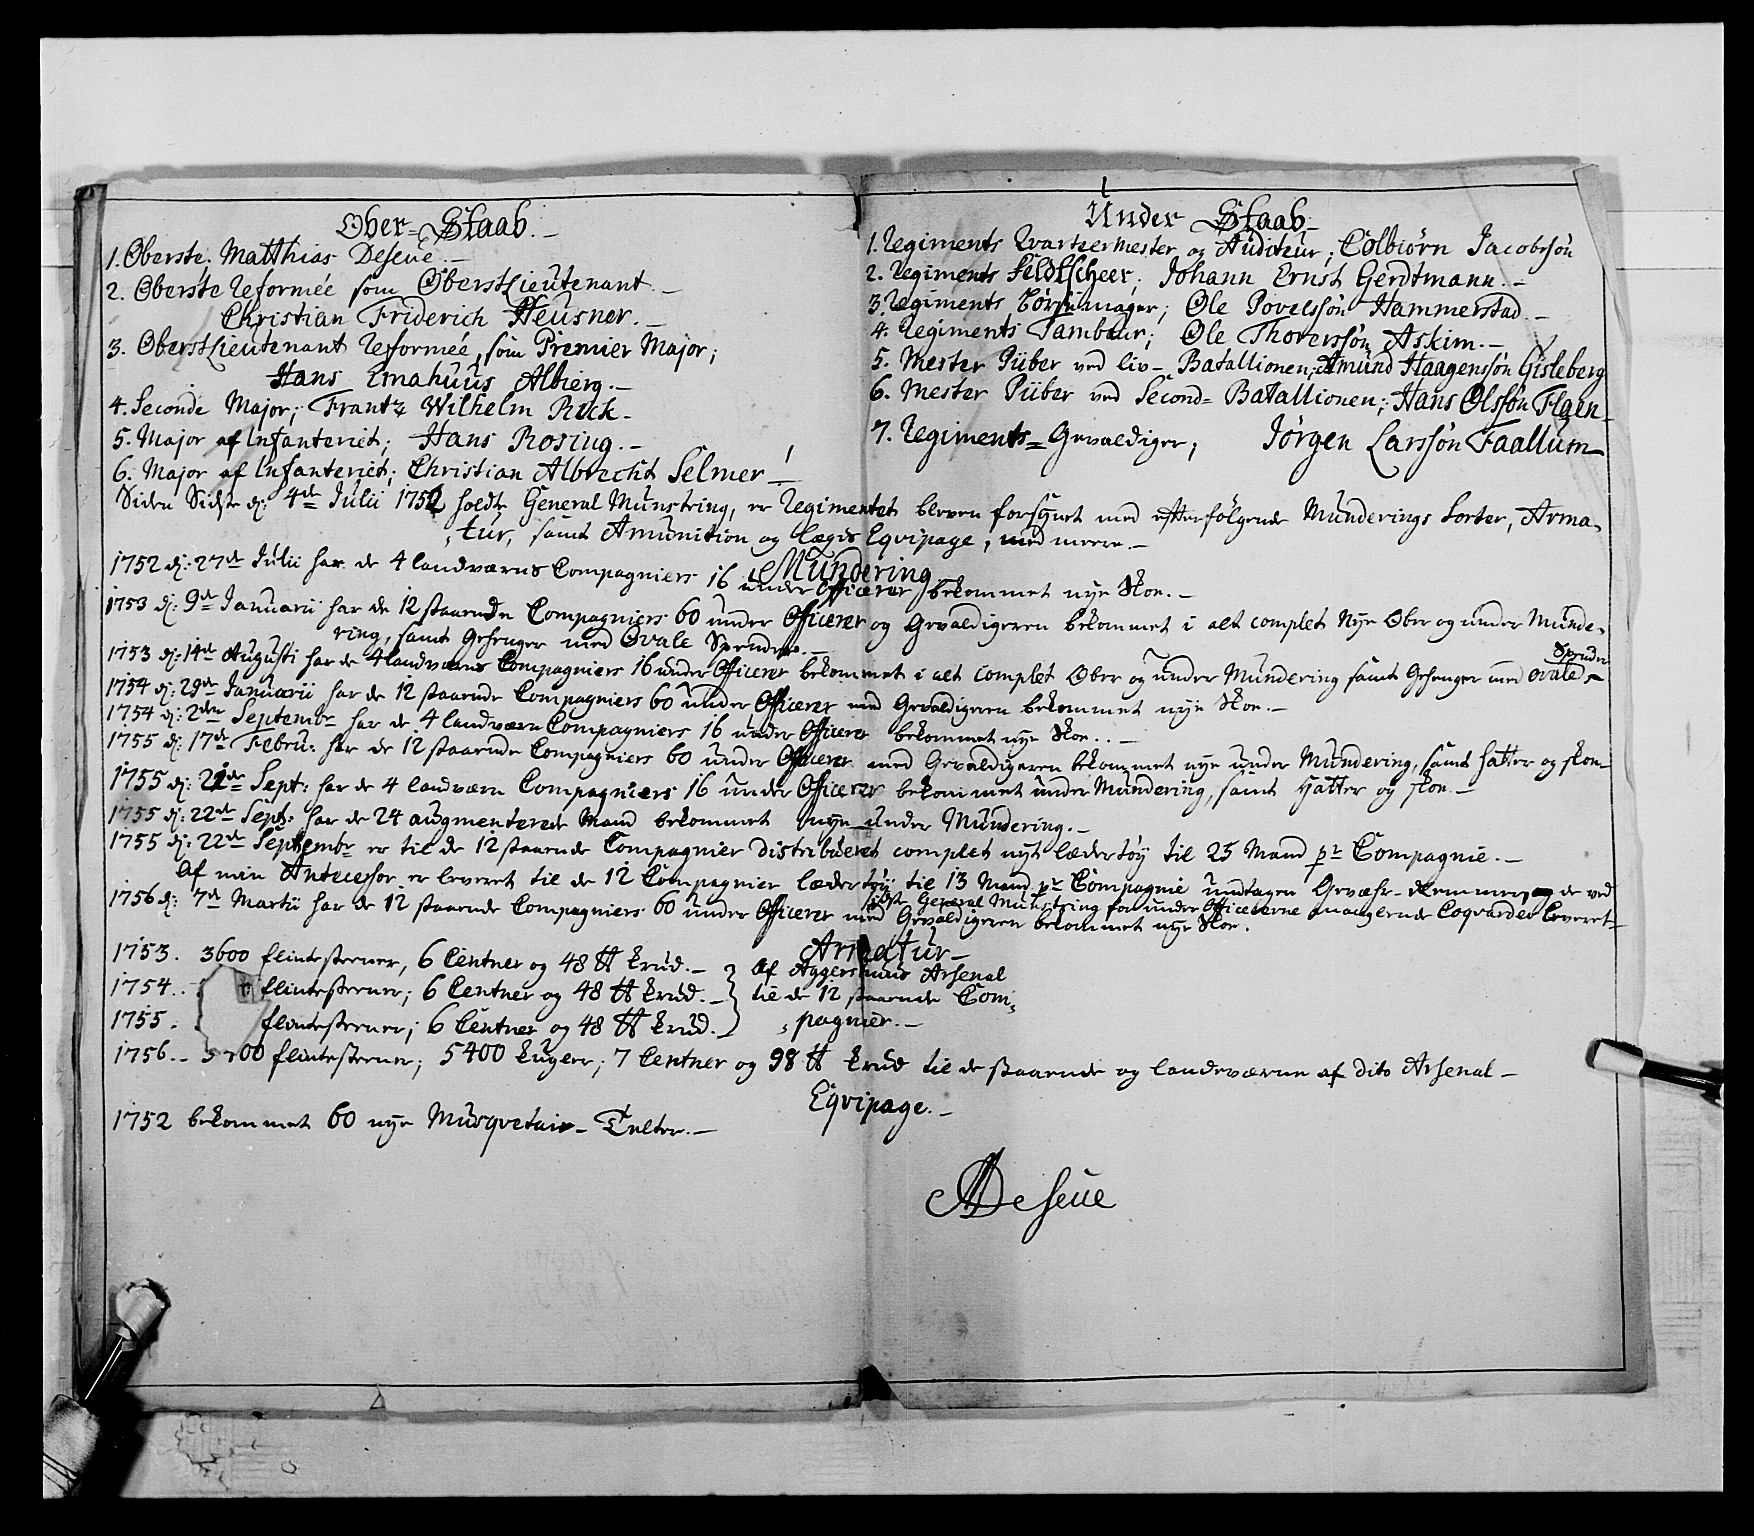 Ober-Staab.
1. Oberste. Matthias Deseüe.
2. Oberste Reformée som Oberstlieütenant.
Christian Friderich Heüsner.
3. Oberstlieutenant Reformée, som Premier Major;
Hans Emahuus Albierg.
4. Seconde Major; Frantz Wilhelm Rück
5. Major af Infanteriet; Hans Rosing.
6. Major af Infanteriet; Christian Albrecht Selmer
Under Staab
1. Regiments Qvarteermester og Auditeur; Colbiörn Jacobssön
2. Regiments Feldtscheer; Johann Ernst Gerdtmann.
3. Regiments Börsemager; Ole Povelssön Hammerstad.
4. Regiments Tambour; Ole Thorerssön Askim.
5. Mester Piiber ved liv-Batallionen; Amünd Haagenssön Gisleberg
6. Mester Piiber ved Second-Batallionen; Hans Olssön Flaen
7. Regiments-Gevaldiger; Jörgen Larssön Faallum
Siden Sidste d: 4de Julii 1752 holdte General Münstring, er Regimentet bleven forsÿnet med efterfölgende Münderings Sorter, Arma-
tür, samt Amünition og Legis Eqvipage, med meere.
Mündering
1752 d: 27de Jülii har de 4 landværns Compagniers 16 ünder Officerer bekommet nye Skoe.
1753 d: 9de Januarii har de 12 staaende Compagniers 60 ünder Officerer og Gevaldigeren bekommet i alt complet Nye Ober og ünder Münde-
ring, samt Gehenger med Ovale Spender.
1753 d: 14de Augusti har de 4 landværns Compagniers 16 ünder Officerer bekommet i alt complet Ober og ünder Mündering samt Gehenger med ovale Spender
1754 d: 29de Januarii har de 12 staaende Compagniers 60 ünder Officerer med Gevaldigeren bekommet nye Skoe.
1754 d: 2den Septembr har de 4 landværn Compagniers 16 ünder Officerer bekommet nye Skoe.
1755 d: 17de Febru: har de 12 staaende Compagniers 60 ünder Officerer med Gevaldigeren bekommet nye ünder Mündering, samt Hatter og skoe
1755 d: 21de Sept: har de 4 landværn Compagniers 16 ünder Officerer bekommet ünder Mündering, samt Hatter og skoe.
1755 d: 22de Sept: har de 24 augmenterede Mand bekommet nye ünder Mündering.
1755 d: 22de Septembr er til de 12 staaende Compagnier distribueret complet nyt lædertöy til 25 Mand pr Compagnie.
Af min Antecessor er leveret til de 12 Compagnier lædertöy til 13 Mand pr Compagnie undtagen Gevæhr-Remmer, og de ved
sidste General Münstring for ünder Officererne manglende Coqvarder leveret
1756 d: 7de Martii har de 12 staaende Compagniers 60 ünder Officerer med Gevaldigeren bekommet nye Skoe.
Armatür
1753. 3600 flintesteener, 6 Centner og 48 ℔ Krüd.
1754. flintesteener; 6 Centner og 48 ℔ Krüd.
1755. flintesteener; 6 Centner og 48 ℔ Krüd.
Af Aggershuus Arsenal
til de 12 staaende Com-
pagnier.
1756. 5400 flintesteener; 5400 Kugler; 7 Centner og 98 ℔ Krüd til de staaende og landeværne af dito Arsenal
Eqvipage.
1752 bekommet 60 nye Müsqvetair-Telter.
MDeseüe